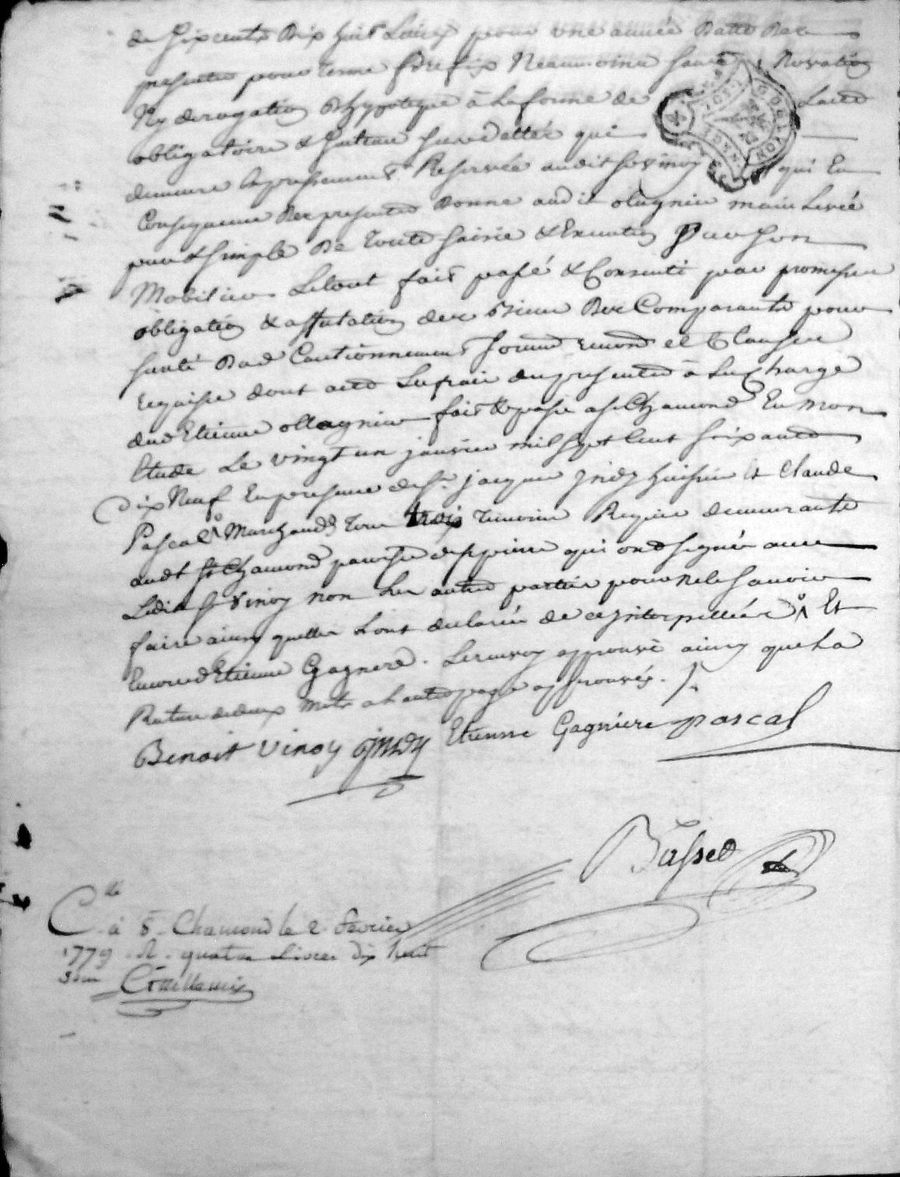 de six cents dix huit Livres pour une année datte des
presentes pour terme prefix Neanmoins sans Novation
Ny derogation d'hypoteque à la forme de Lacte
obligatoire & qui
demeure expressement Reservée audit s. vinoy qui En
Consequence des presentes donne audit olagnier main Levée
pure & simple de toute saisie & Execution sur son
Mobilier Le tout fait passé & Consenti par promesses
obligation & affectation des biens des Comparants pour
sureté dud Cautionnement soumis renon et Clauses
requises dont acte Les frais des presentes à La Charge
dud Etienne ollagnier fait & passé a s. Chamond En mon
Etude Le vingt un janvier mil sept Cent soixante
Dix Neuf En presence de s. jacques jndy huissier et Claude
Pascal Marchand tous trois temoins Requis demeurants
audt st Chamond paroisse de s. pierre qui ont signé avec
Ledit s. vinoy non Les autres parties pour ne le savoir
faire ainsy quelles L'ont declaré de ce jnterpellées Et
Encore d Etienne Gagnere. Le renvoy approuvé ainsy que La
Rature de deux mots a L'autre page approuvés.
Benoit vinoy jndy Etienne Gagniere pascal
Basset
C.lle à S. Chamond le 2 fevrier
1779 R. quatre Livres dix neuf